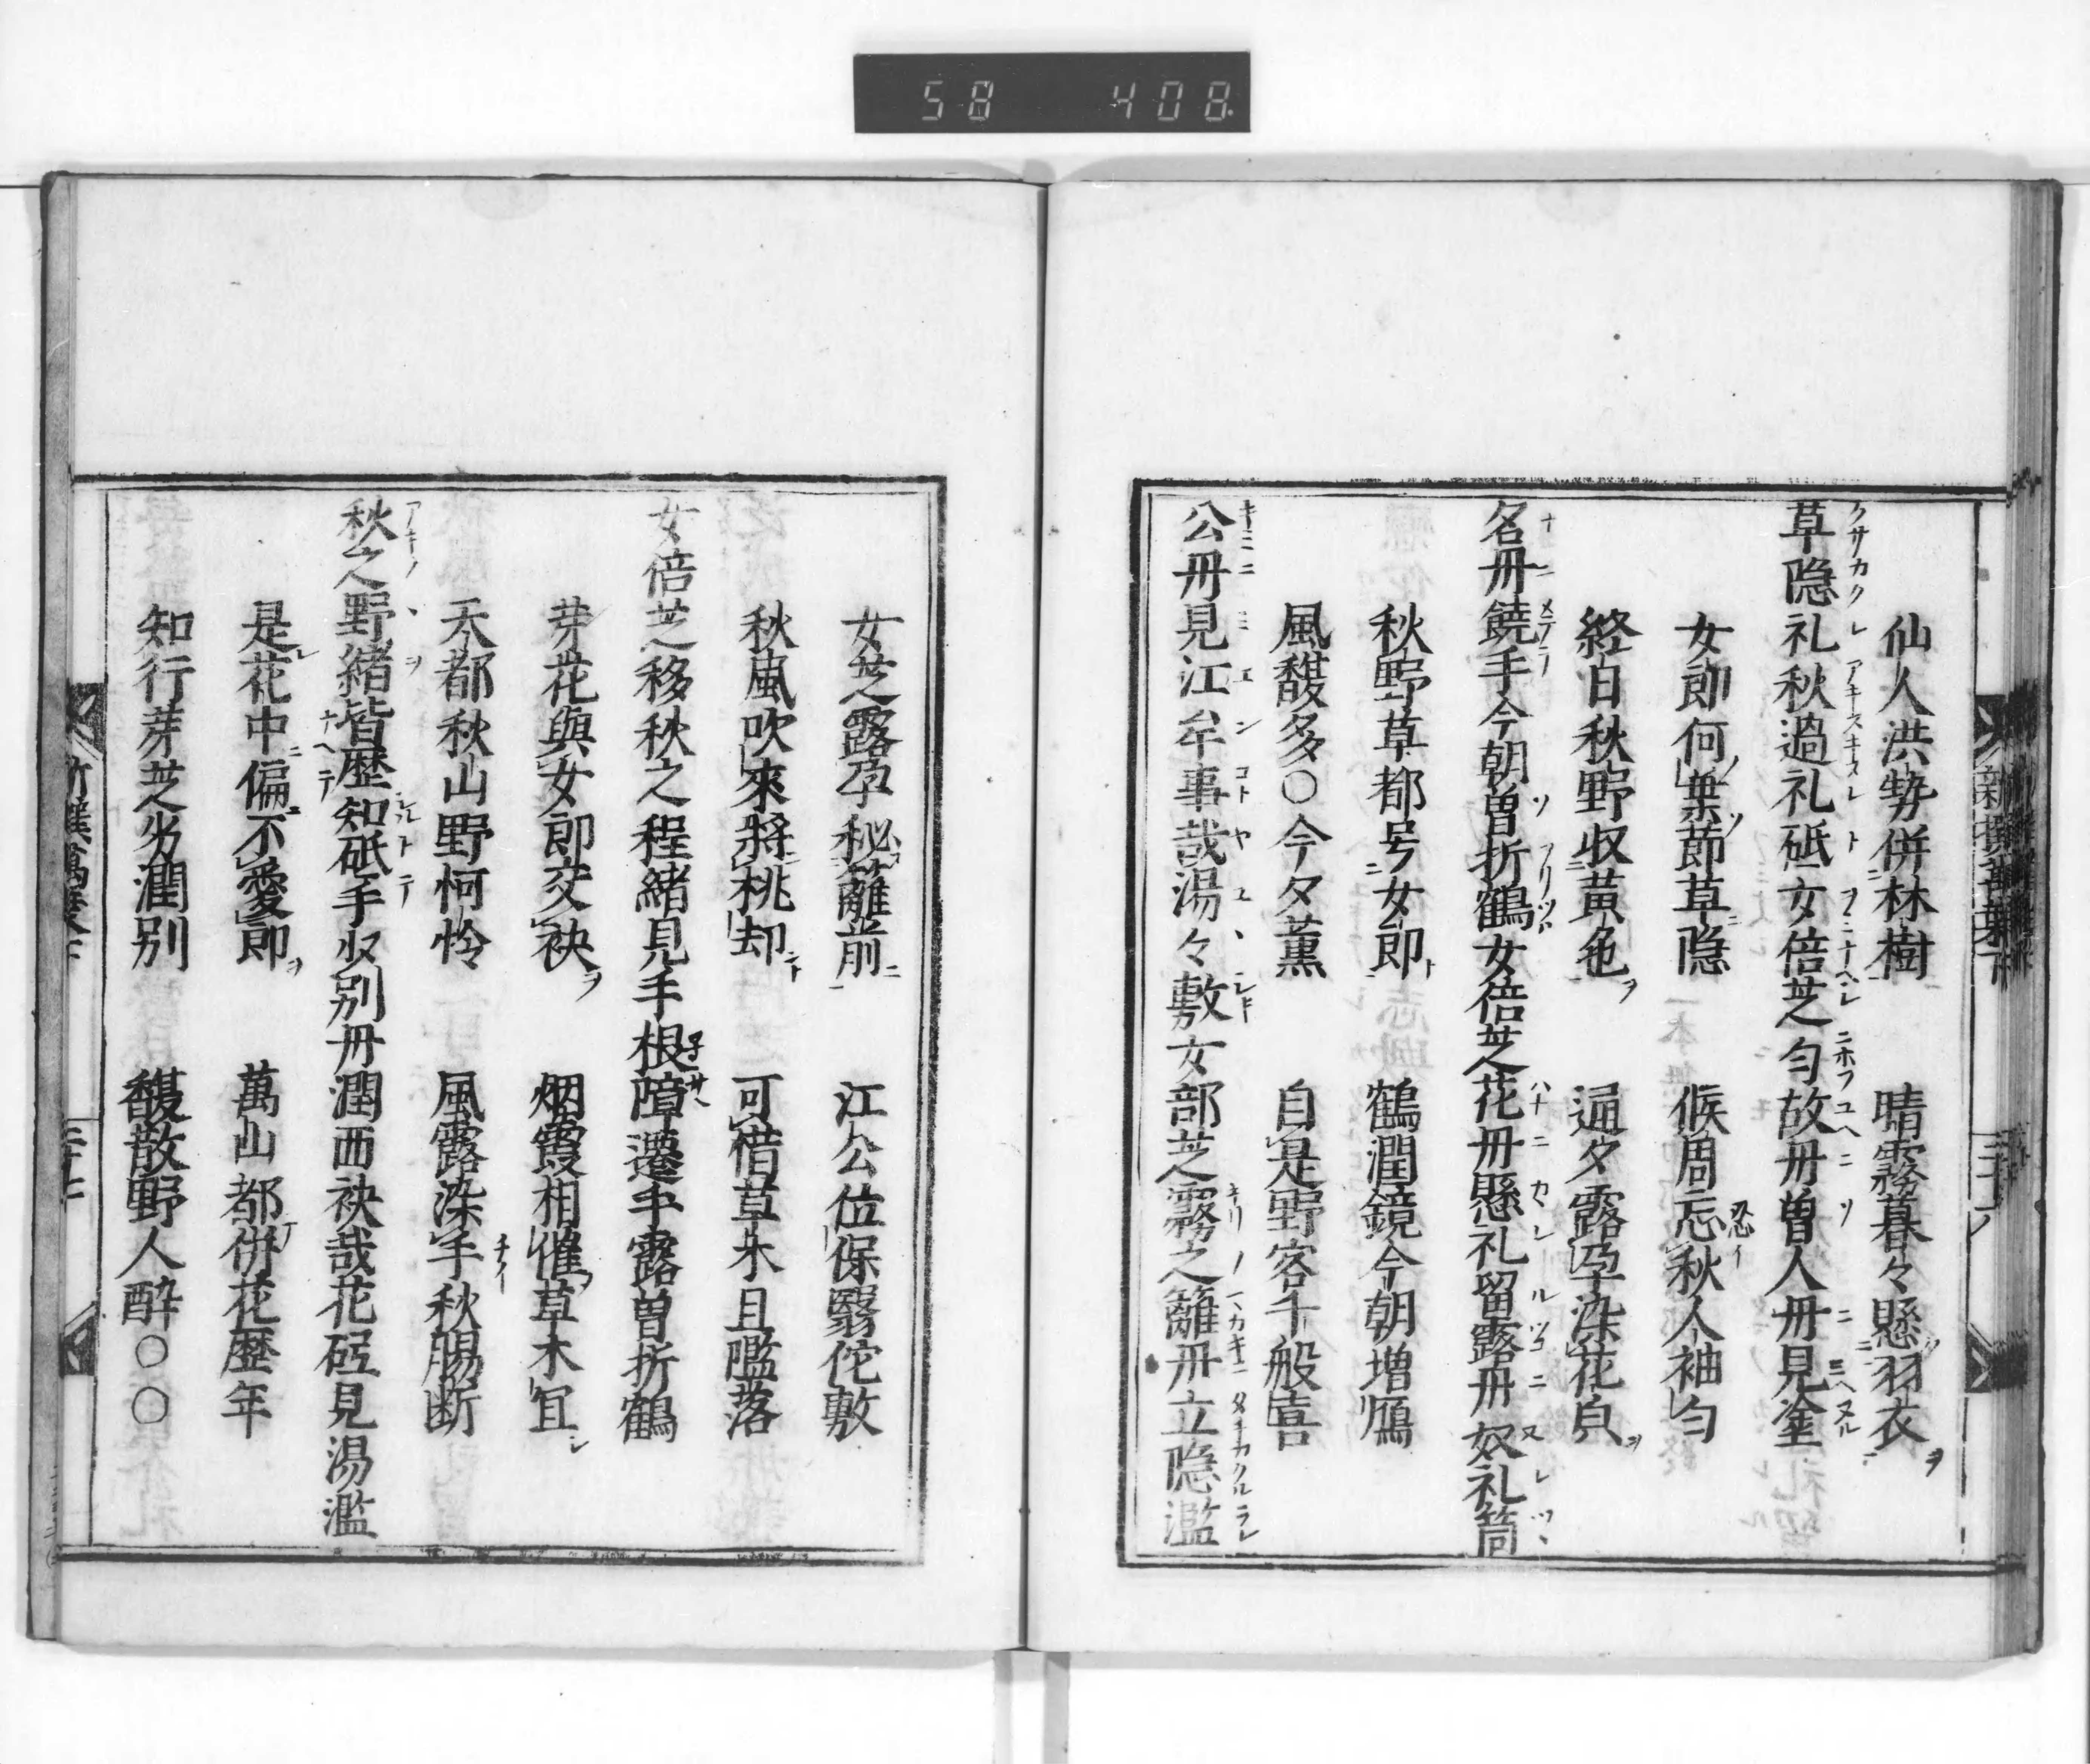 58 408
仙人洪勢併林樹 晴霧暮々懸羽衣
草隠礼秋過礼砥女倍芝匂故丹曽人丹見塗
女郎何葉節草隠 候周忘秋人袖匂
終日秋野収黄色 通夕露孕染花貞
名丹饒手今朝曽折鶴女倍芝花丹懸礼留露丹奴礼筒
秋野草都号女郎 鶴潤鏡今朝増鴈
風馥多〇今夕薫 自是野客千般喜
公丹見江牟事哉湯々敷女部芝霧之籬丹立隠濫
新撰萬葉下
女芝露孕秘籬前 江公位保翳佗敷
秋風吹來將桃却 可惜草木且濫落
女倍芝移秋之程緒見手根障遷手露曽折鶴
芽花與女郎交袂 烟霞相催草木宜
天都秋山野怜 風露染手秋腸断
秋之野緒皆歴知砥手収別丹潤西袂哉花砥見湯濫
是花中偏不愛郎 萬山都併花歴年
知行芽芝劣潤別 馥散野人酔〇〇